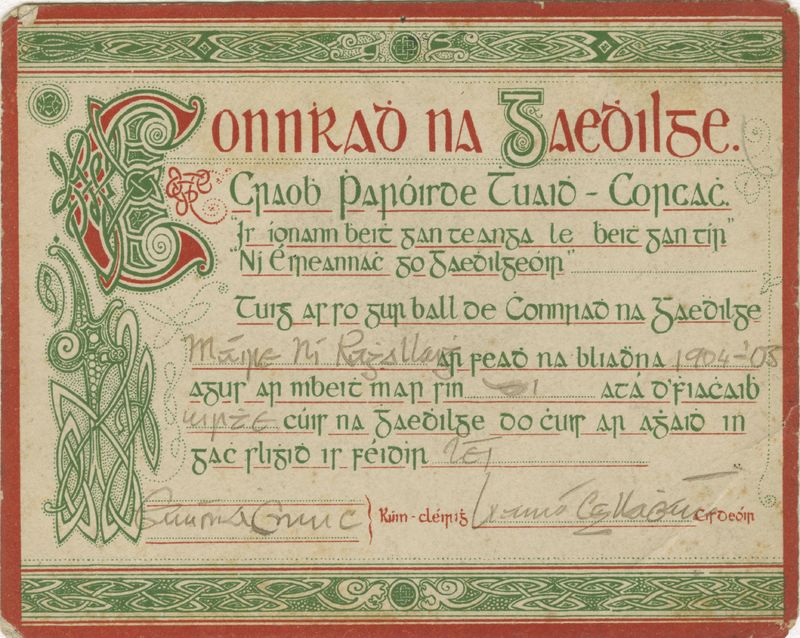 Connraḋ na Gaeḋilge.
Craoḃ Ṗaróisde Tuaiḋ - Corcaċ.
"Is ionann beiṫ gan teanga le beiṫ gan tír"
"Ní Éireannaċ go Gaeḋilgeóir"
Tuig as so gur ball de Ċonnraḋ na Gaeḋilge
Máire Ní Raġallaiġ ar feaḋ na bliaḋna 1904-'05
agus ar mbeiṫ mar sin di atá d'ḟiaċaiḃ
uirṫe cúis na Gaeḋilge do ċur ar aġaiḋ in
gaċ sliġiḋ is féidir léi
Rúin-cléiriġ Cisdeóir